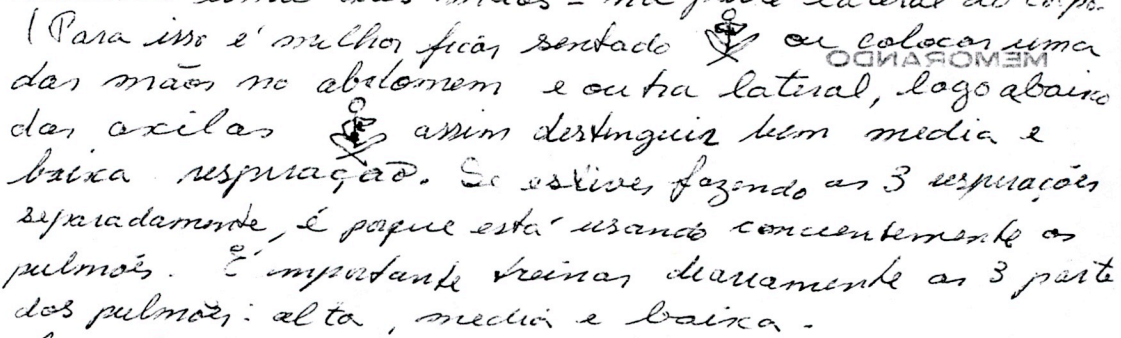 (Para isso é melhor ficar sentado ou colocar uma
MEMORANDO
das mãos no abdomem e outra lateral, logo abaixo
das axilas assim destinguir bem media e
baixa respiração. Se estiver fazendo as 3 respirações
separadamente, é porque está usando concientemente os
pulmões. É importante treinar diariamente as 3 parte
dos pulmões: alta, media e baixa.